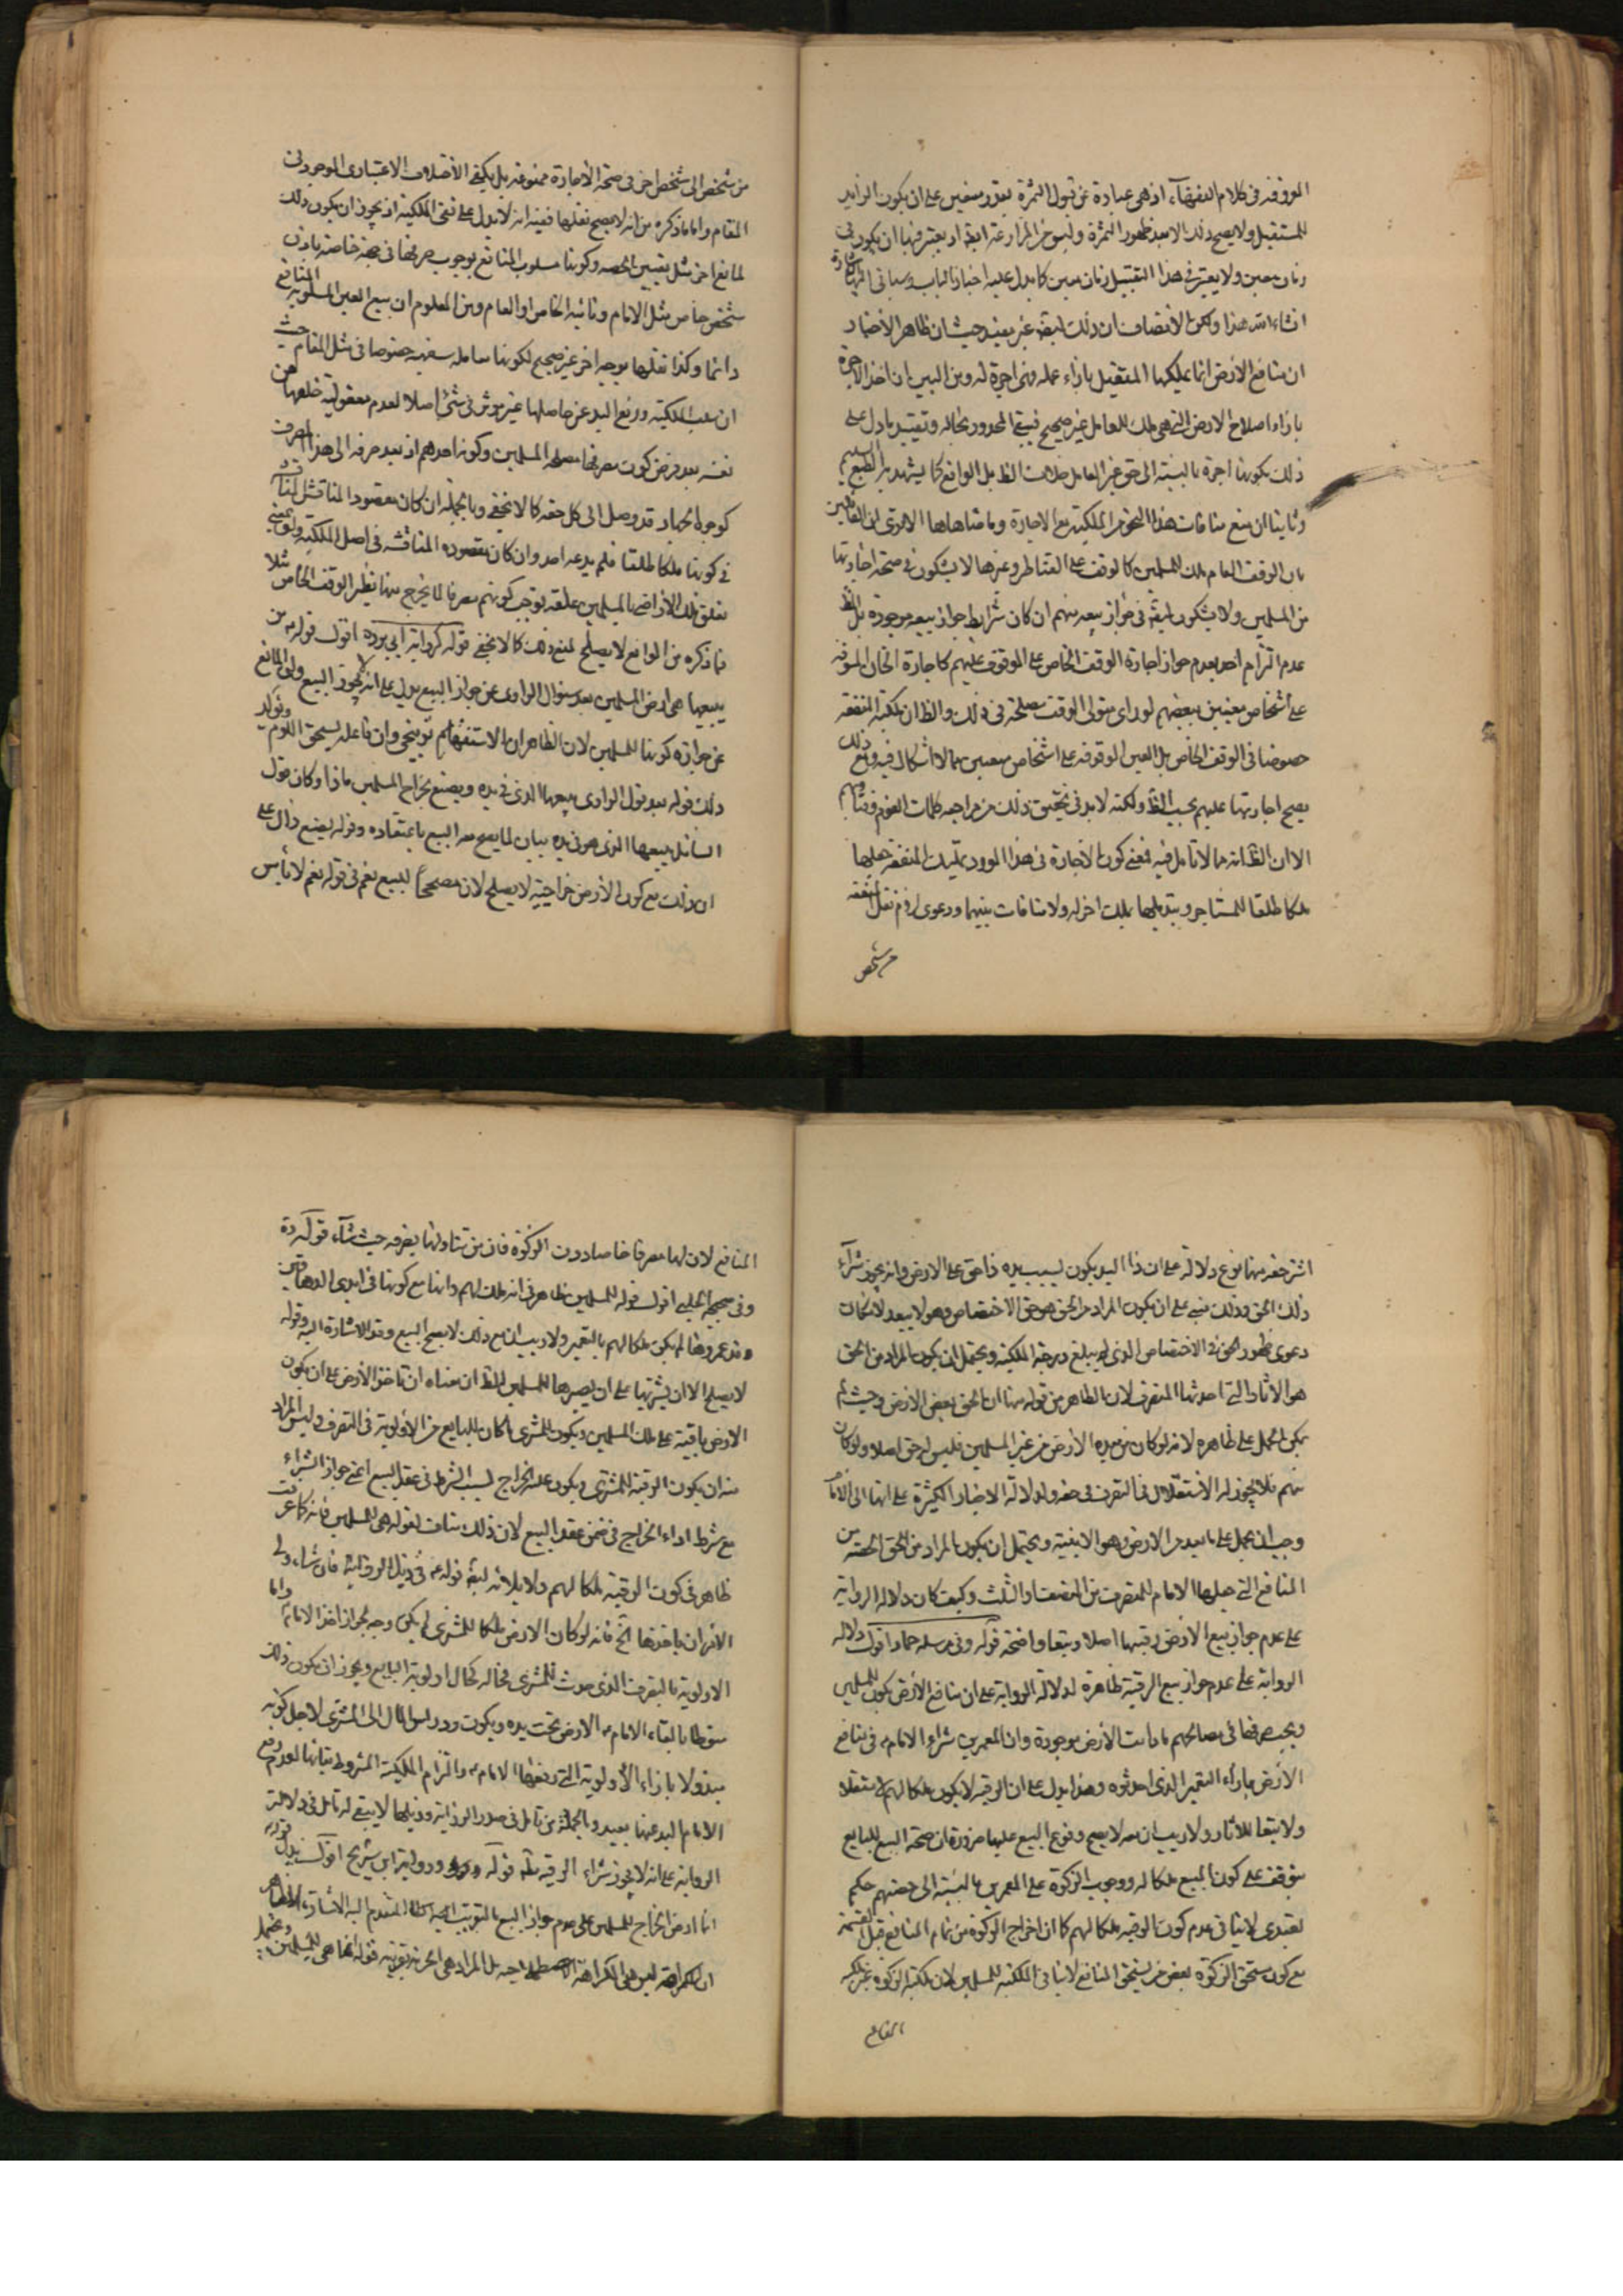 المعروفة في كلام الفقهاء اذ هي عبارة عن قبول الثمرة بقدر معين على ان يكون الزايد
للمتقبل ولا يصح ذلك الا بعد ظهور الثمرة وليس من المزارعة ايضا اذ يعتبر فيها ان يكون في
زمان معين ولا يعتبر في هذا التقبيل زمان معين كما يدل عليه اخبار الباب وسياتي اليه الاشارة
انشاء الله هذا ولكن الانصاف ان ذلك ايضا غير بعيد حيث ان ظاهر الأخبار
ان منافع الأرض انما يملكها المتقبل بازاء عمله فهي اجرة له ومن البين ان اخذ الاجرة
بازاء اصلاح الارض التي هي ملك للعامل غير صحيح فيبقى المحذور بحاله وتقييد ما دل على
ذلك بكونها اجرة بالنسبة الى حق غير العامل خلاف الظ بل الواقع كما يشهد به الطبع السليم
وثانيا ان منع منافات هذا النحو من الملكية مع الاجارة وما ضاهاها الا ترى ان القائلين
بان الوقف العام ملك للمسلمين كالوقف على القناطر وغيرها لا يشكون في صحة اجارتها
من المسلمين ولا يشكون ايضا في جواز بيعه منهم ان كان شرايط جواز بيعه موجودة بل الظ
عدم التزام احد بعدم جواز اجارة الوقف الخاص على الموقوف عليهم كاجارة الخان الموقوفة
على أشخاص معينين بعضهم لو راى متولى الوقف مصلحة في ذلك والظ ان ملكية المنفعة
خصوصا في الوقف الخاص بل العين الموقوفة على اشخاص معينين مما لا اشكال فيه ومع ذلك
يصح اجارتها عليهم بحسب الظ ولكنه لا بد في تحقيق ذلك من مراجعة كلمات القوم وفتاواهم
الا ان الظ انه مما لا تامل فيه فمعنى كون الاجارة في هذا المورد تمليك المنفعة جعلها
ملكا طلقا للمستاجر وتبديلها بملك اخر له ولا منافات بينهما ودعوى لزوم نقل المنفعة
من شخص
من شخص الى شخص اخر في صحة الأجارة ممنوعة بل يكفي الأختلاف الاعتبارى الموجود في
المقام واما ما ذكره من انه لا يصح نقلها ففيه انه لا يدل على نفى الملكية اذ يجوز ان يكون ذلك
لمانع اخر مثل تعيين الحصه وكونها مسلوب المنافع بوجوب صرفها في جهة خاصة باذن
شخص خاص مثل الامام ونائبه الخاص او العام ومن المعلوم ان بيع العين المسلوبة المنافع
دائما وكذا نقلها بوجه اخر غير صحيح لكونها معاملة سفهية خصوصا في مثل المقام حيث
ان سلب الملكية ورفع اليد عن حاصلها غير موثر في شئ اصلا لعدم معقولية خلعها عن
نفسه بعد فرض كون مصرفها مصلحة المسلمين وكونه احدهم اذ بعد صرفه الى هذا المصرف
كوجوه الجهاد قد وصل الى كل حقه كما لا يخفى وبالجملة ان كان مقصود المناقش المناقشة
في كونها ملكا طلقا فلم يدعه احد وان كان مقصوده المناقشه في اصل الملكية ولو بمعنى
تعلق تلك الأراضي بالمسلمين علقة توجب كونهم مصرفا لما يخرج منها نظير الوقف الخاص مثلا
فما ذكره من الموانع لا يصلح لمنع ذلك كما لا يخفى قوله كرواية ابي بردة اقول قوله من
يبيعها هي ارض المسلمين بعد سئوال الراوى عن جواز البيع يدل على انه لا يجوز البيع وان المانع
عن جوازه كونها للمسلمين لان الظاهر ان الاستفهام توبيخى وان فاعله يستحق اللوم ويؤكد
ذلك قوله بعد قول الراوى يبيعها الذى في يده ويصنع بخراج المسلمين ماذا وكان قول
السائل يبيعها الذى هو في يده بيان لما يصح معه البيع باعتقاده وقوله يصنع دال على
ان ذلك مع كون الأرض خراجية لا يصلح لان مصححا للبيع نعم في قوله نعم لا باس
اشتر حقه منها نوع دلالة على ان ذا اليد يكون بسبب يده ذا حق على الارض وانه يجوز شرآء
ذلك الحق وذلك مبني على ان يكون المراد من الحق هو حق الاختصاص وهو لا يبعد لامكان
دعوى ظهور الحق في الاختصاص الذى لم يبلغ درجة الملكية ويحتمل ان يكون المراد من الحق
هو الأثار التي احدثها المتصرف لان الظاهر من قوله منها ان الحق بعض الارض وحيث لم
يمكن الحمل على ظاهره لانه لو كان من بيده الأرض من غير المسلمين فليس له حق اصلا ولو كان
منهم فلا يجوز له الأستقلال في التصرف في حقه ولدلالة الاخبار الكثيرة على انها الى الامام
وجب ان يحمل على ما يعد من الارض وهو الابنية ويحتمل ان يكون المراد من الحق الحصة من
المنافع التي جعلها الامام للمتصرف من النصف او الثلث وكيف كان دلالة الرواية
على عدم جواز بيع الارض رقبتها اصلا وتبعا واضحة قوله وفي مرسلة حماد اقول دلالة
الرواية على عدم جواز بيع الرقبة ظاهرة لدلالة الرواية على ان منافع الأرض يكون للمسلمين
ويجب صرفها في مصالحهم ما دامت الأرض موجودة وان المعمرين شركاء الامام في منافع
الأرض بازاء التعمير الذى احدثوه وهذا يدل على ان الرقبة لا يكون ملكا لهم لا مستقلا
ولا تبعا للاثار ولا ريب ان معه لا يصح وقوع البيع عليها ضرورة ان صحة البيع للبايع
يتوقف على كون المبيع ملكا له ووجوب الزكوة على المعمرين بالنسبة الى حصتهم حكم
تعبدى لا ينافى عدم كون الرقبة ملكا لهم كما ان اخراج الزكوة من تمام المنافع قبل القسمة
مع كون مستحق الزكوة بعض من يستحق المنافع لا ينافى الملكية للمسلمين لان ملكية الزكوة غير ملكية
المنافع
المنافع لان لها مصرفا خاصا دون الزكوة فان من تناولها يصرفه حيث شآء قوله ره
وفي صحيحة الحلبي اقول قوله للمسلمين ظاهر في انه ملك لهم وانها مع كونها في ايدى الدهاقين
وقد عمروها لم يكن ملكا لهم بالتعمير ولا ريب ان مع ذلك لا يصح البيع وقد الاشارة اليه وقوله
لا يصلح الا ان يشتريها على ان يصيرها للمسلمين الظ ان معناه ان تاخذ الأرض على ان يكون
الارض باقية على ملك المسلمين ويكون للمشترى ما كان للبايع من الأولوية في التصرف وليس المراد
منه ان يكون الرقبة للمشترى ويكون عليه الخراج بسبب الشرط في عقد البيع اعني جواز الشراء
مع شرط اداء الخراج في ضمن عقد البيع لان ذلك مناف لقوله هي للمسلمين فانه كما عرفت
ظاهر في كون الرقبة ملكا لهم ولا يلائمه ايضا قوله في ذيل الرواية فان شاء ولي
الأمر ان ياخذها اخ فانه لو كان الارض ملكا للمشترى لم يكن وجه لجواز اخذ الامام واما
الاولوية بالتصرف الذى حدث للمشترى فحاله كحال اولوية البايع ويجوز ان يكون ذلك
سقطا بابقاء الامام الارض تحت يده ويكون رد راس المال الى المشترى لاجل كونه
مبذولا بازاء الأولوية التي رفعها الامام والتزام الملكية المشروط بقائها لعدم رفع
الامام اليد عنها بعيد وبالجملة من تامل في صدر الرواية وذيلها لا يبقى له تامل في دلالة
الرواية على انه لا يجوز شراء الرقبة قوله ورواية ابن شريح اقول يدل قوله
انما ارض الخراج للمسلمين على عدم جواز البيع بالتقريب المتقدم اليه الأشارة
ان الكراهة ليس هي الكراهة المصطلحة بل المراد هي الحرمة بقرينة قوله انما هي للمسلمين